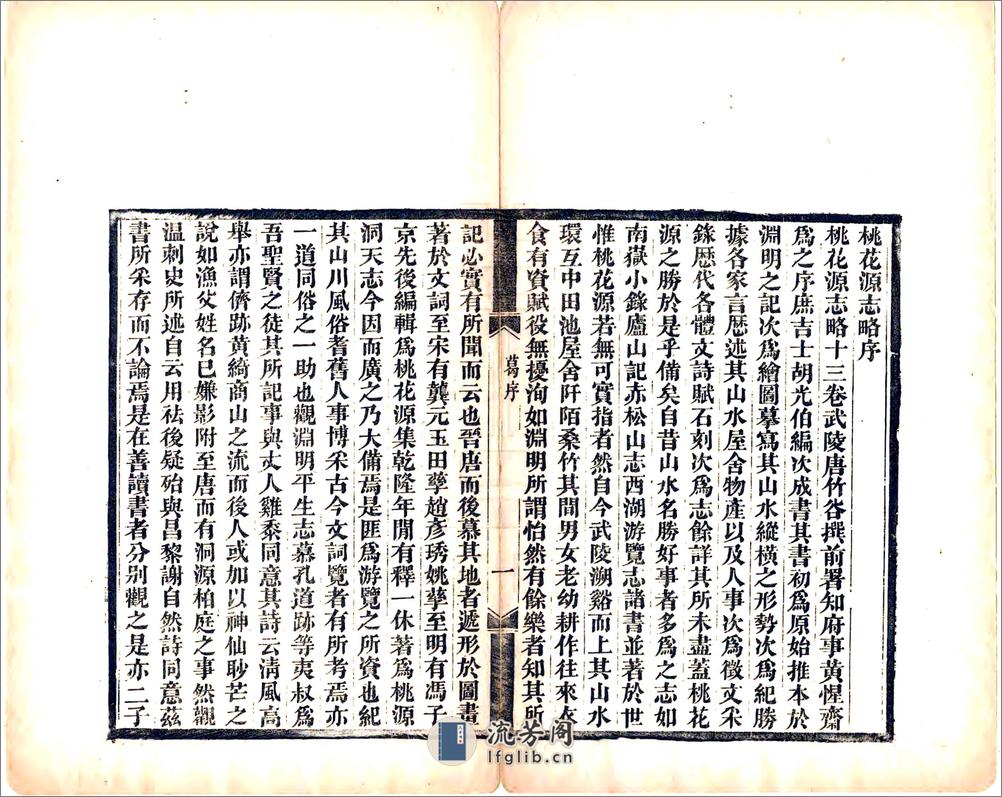 桃花源志略序
桃花源志略十三卷武陵唐竹谷撰前署知府事黃惺齋
爲之序庶吉士胡光伯編次成書其書初爲原始推本於
淵明之記次爲繪圖摹寫其山水縱橫之形勢次爲紀勝
據各家言歷述其山水屋舍物產以及人事次爲徵文采
錄歷代各體文詩賦石刻次爲志餘詳其所未盡蓋桃花
源之勝於是乎備矣自昔山水名勝好事者多爲之志如
南嶽小錄廬山記赤松山志西湖游覽志諸書並著於世
惟桃花源若無可實指者然自今武陵溯谿而上其山水
環互中田池屋舍阡陌桑竹其間男女老幼耕作往來衣
食有資賦役無擾洵如淵明所謂怡然有餘樂者知其所
葛序
一
記必實有所聞而云也晉唐而後慕其地者遞形於圖畫
著於文詞至宋有龔元玉田孳趙彥琇姚孳至明有馮子
京先後編輯爲桃花源集乾隆年間有釋一休著爲桃源
洞天志今因而廣之乃大備焉是匪爲游覽之所資也紀
其山川風俗耆舊人事博采古今文詞覽者有所考焉亦
一道同俗之一助也觀淵明平生志慕孔道跡等夷叔爲
吾聖賢之徒其所記事與丈人雞黍同意其詩云淸風高
舉亦謂儕跡黃綺商山之流而後人或加以神仙眇芒之
說如漁父姓名已嫌影附至唐而有洞源柏庭之事然觀
溫刺史所述自云用祛後疑殆與昌黎謝自然詩同意茲
書所采存而不論焉是在善讀書者分別觀之是亦二子
流芳阁
lfglib.cn